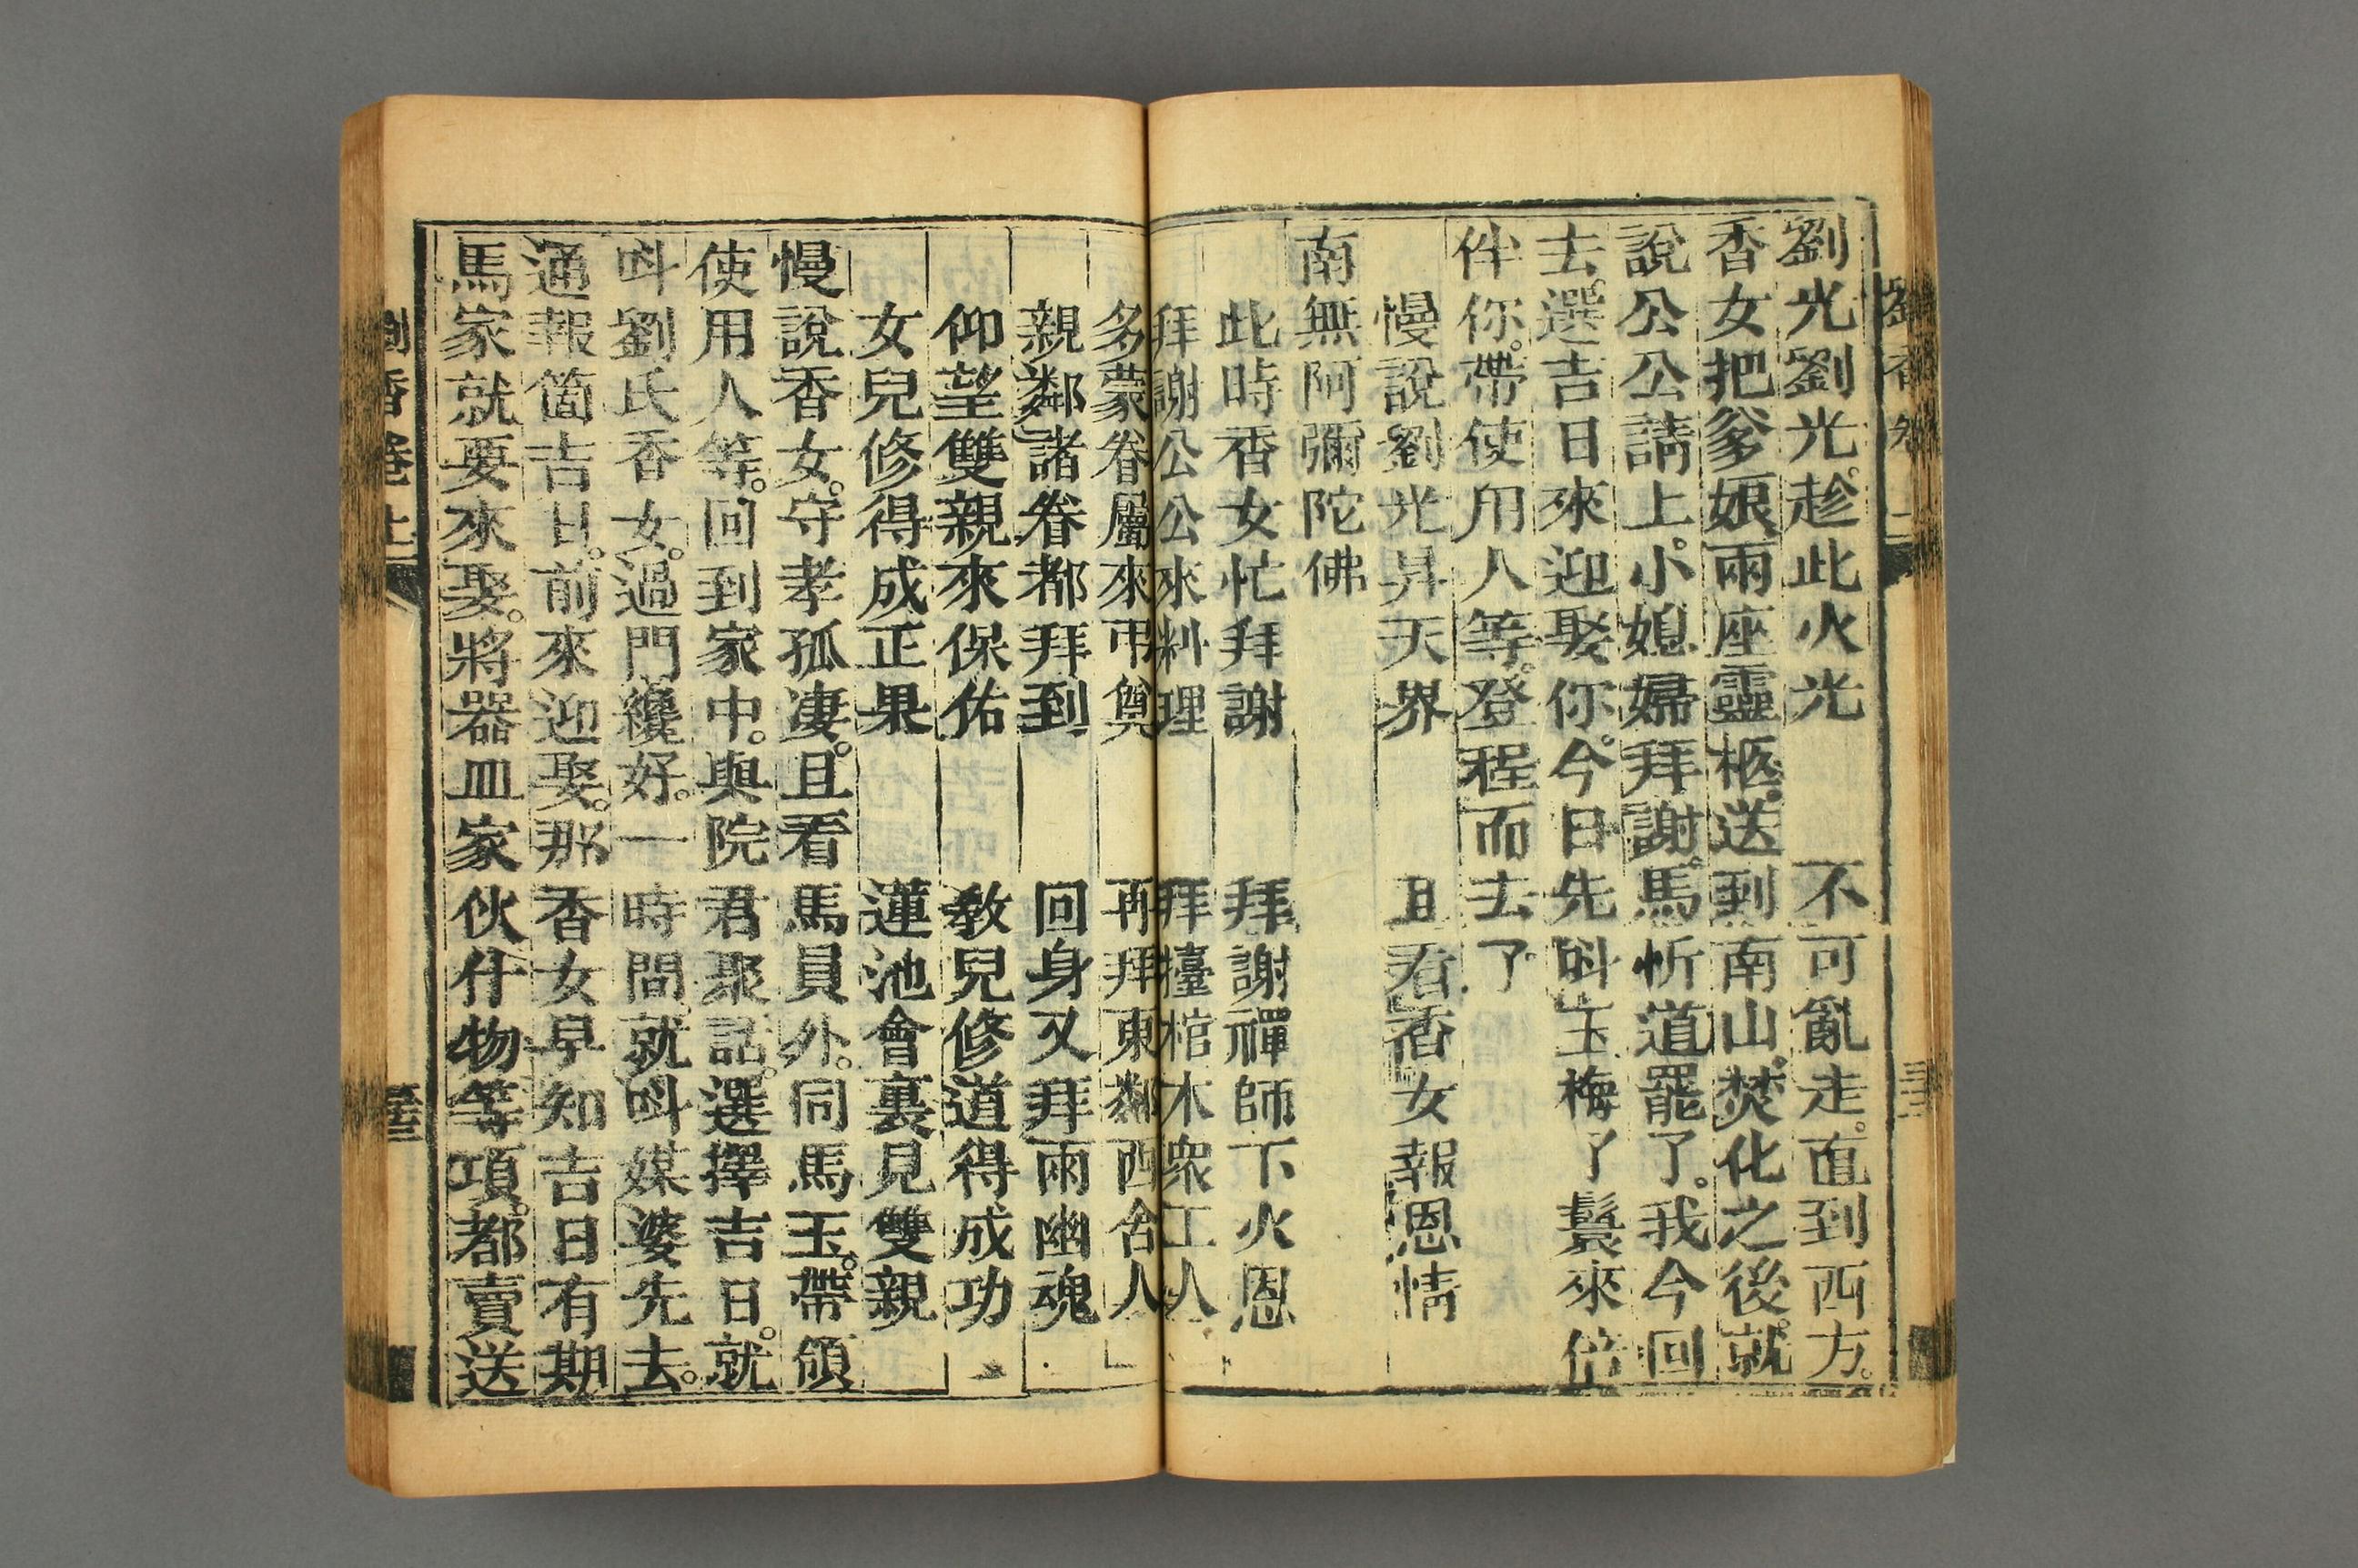 劉香卷上
三三
劉光劉光。趁此火光　不可亂走。直到西方。
香女把爹娘兩座靈柩。送到南山。焚化之後。就
說公公請上。小媳婦拜謝。馬忻道罷了。我今回
去。選吉日來迎娶你。今日先呌玉梅了鬟來倍
伴你。帶使用人等。登程而去了
慢說劉光昇天界　且看香女報恩情
南無阿彌陀佛
此時香女忙拜謝　拜謝禪師下火恩
拜謝公公來料理　拜擡棺木衆工人
多蒙眷屬來弔奠　再拜東鄰西舍人
親鄰諸眷都拜到　回身又拜兩幽魂
仰望雙親來保佑　教兒修道得成功
女兒修得成正果　蓮池會裏見雙親
慢說香女。守孝孤凄。且看馬員外。同馬玉。帶領
使用人等。回到家中。與院君聚話。選擇吉日。就
呌劉氏香女。過門纔好。一時間。就呌媒婆先去。
通報箇吉日。前來迎娶。那香女早知吉日有期
馬家就要來娶。將器皿家伙什物等項。都賣送
劉香卷上